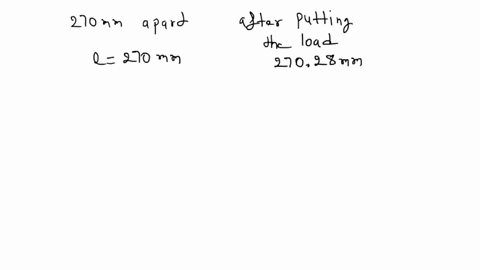 270 mm apart
l = 270 mm
after putting
the load
270.28 mm